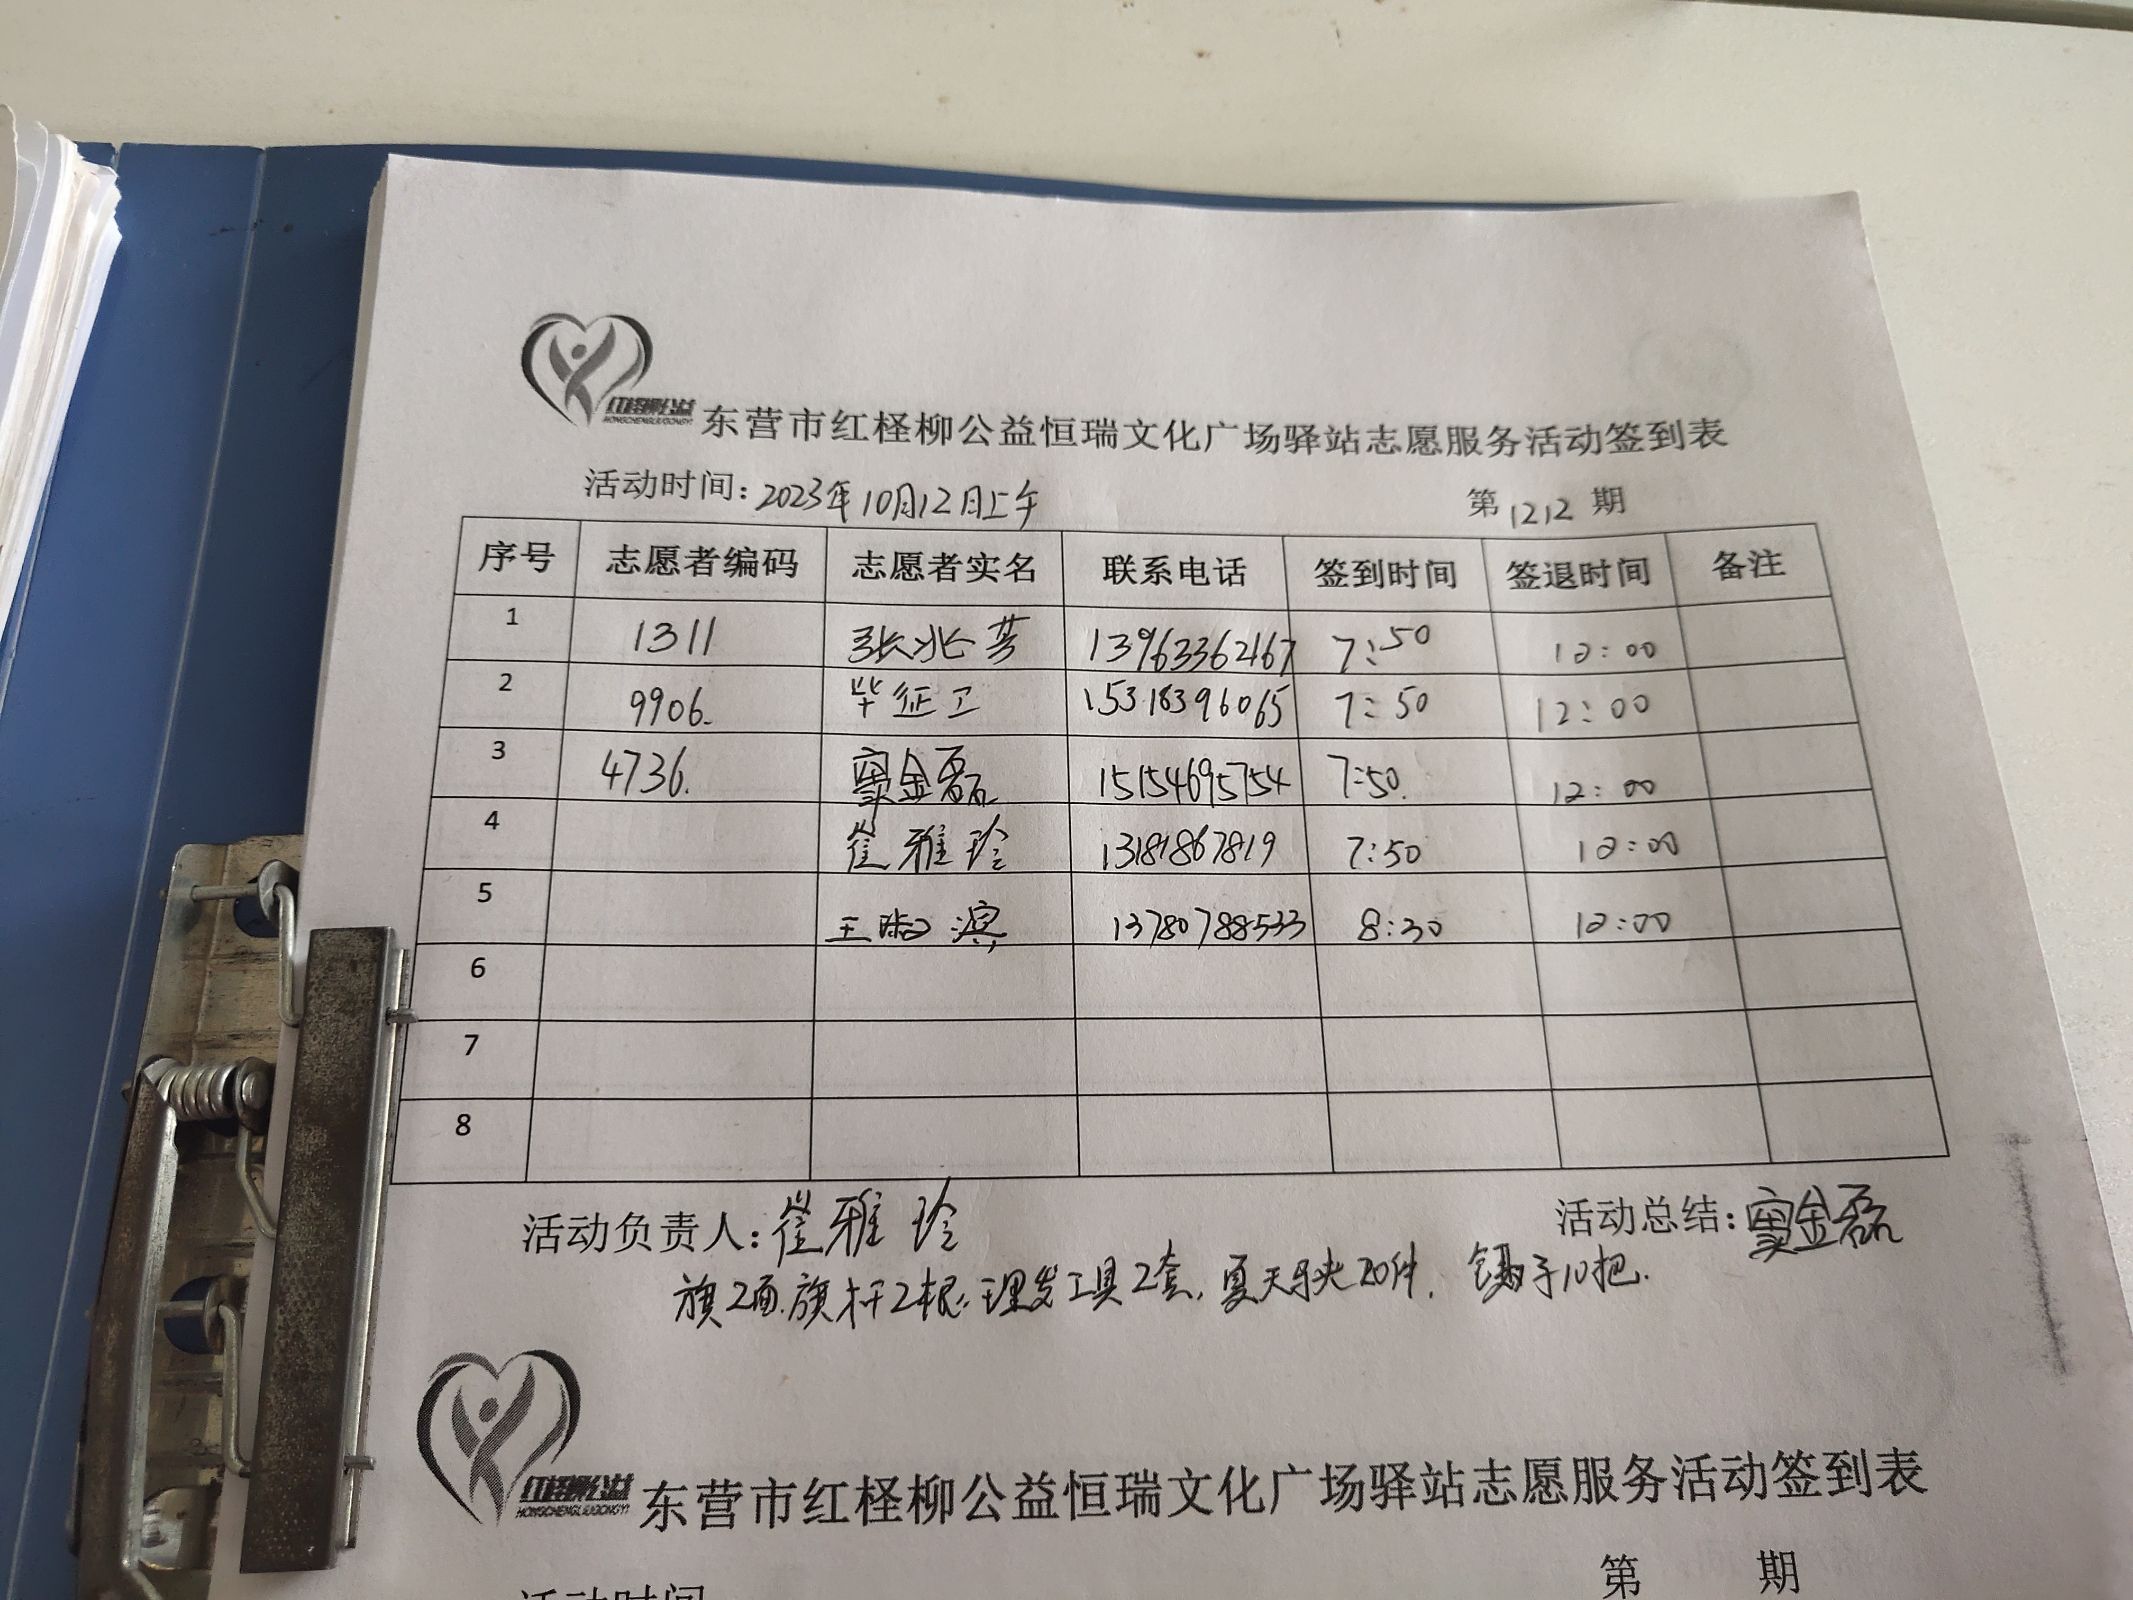 红柽柳公益
HONGCHENGLIUGONGYI
东营市红柽柳公益恒瑞文化广场驿站志愿服务活动签到表
活动时间：2023年10月12日上午 第1212期
序号 志愿者编码 志愿者实名 联系电话 签到时间 签退时间 备注
1 1311 张兆芳 13963362167 7:50 12:00
2 9906. 毕征卫 15318396065 7:50 12:00
3 4736. 窦金磊 15154695754 7:50. 12:00
4 崔雅玲 13181867819 7:50 12:00
5 王 滨 13780788533 8:30 12:00
6
7
8
活动负责人：崔雅玲 活动总结：窦金磊
旗2面.旗杆2根.理发工具2套,夏天马夹20件. 镊子10把.
红柽柳公益
HONGCHENGLIUGONGYI
东营市红柽柳公益恒瑞文化广场驿站志愿服务活动签到表
第 期
活动时间